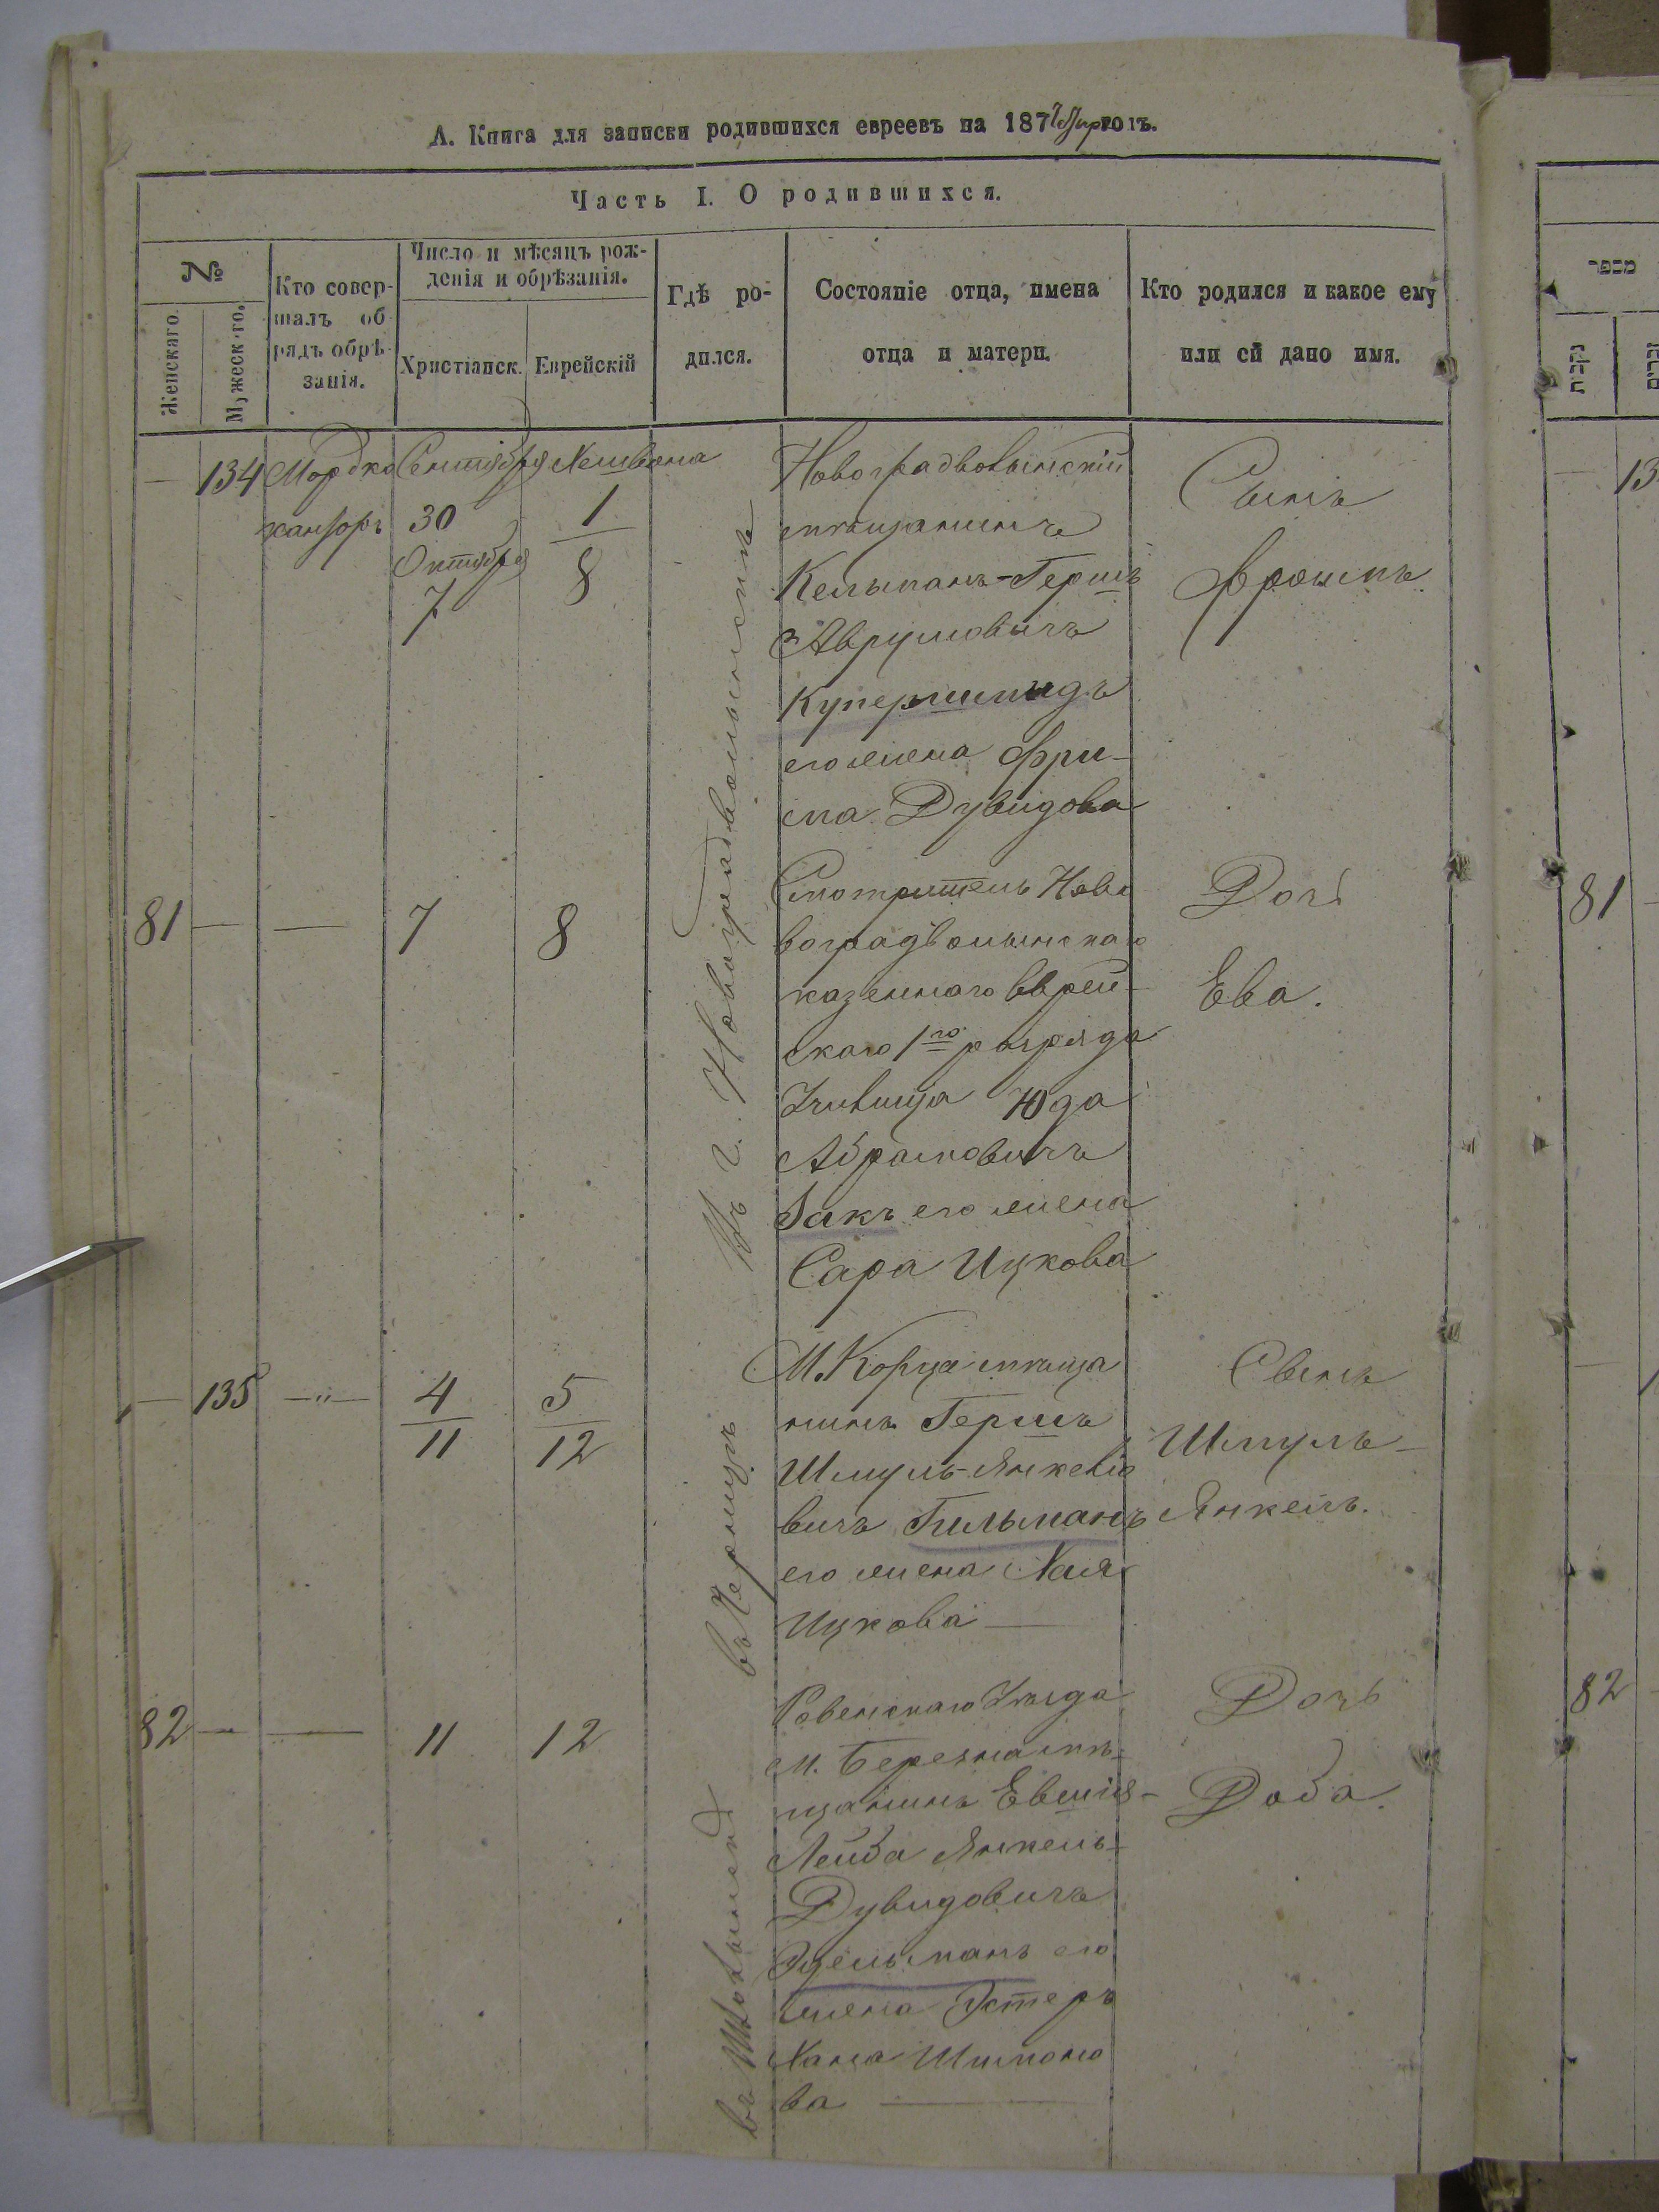 А. Книга для записки родившихся евреевъ на 187 годъ.
Часть I. О родившихся.
№
Женскаго.
Мужеск-го.
Кто совер-
шалъ об
рядъ обрѣ-
занія.
Число и мѣсяцъ рож-
денія и обрѣзанія.
Христіанск.
Еврейскій
Гдѣ ро-
дился.
Состояніе отца, имена
отца и матери.
Кто родился и какое ему
или ей дано имя.
מספר
נקבות
זכרים
— 134 Мордко Сентября Хешвана
30 1
Октября
7 8
Въ г. Новоградволынскѣ
Новоградволынскій
мѣщанинъ
Кельманъ-Гершъ
Аврумовичъ
Купершмидъ
его жена Фри-
ма Дувидова
Сынъ
Фроимъ.
81 — — 7 8
Смотритель Ново
воградволынскаго
казеннаго Еврей-
скаго 1го разряда
Училища Юда
Абрамовичъ
Закъ его жена
Сара Ицкова
Дочь
Ева.
— 135 —"— 4 5
11 12
М. Корца мѣща
нинъ Гершъ
Шмуль-Янкеліо
вичъ Гильманъ
его жена Хая
Ицкова —
Сынъ
Шмуль-
Янкель.
82 — — 11 12
Ровенскаго Уѣзда
м. Березна мѣ-
щанинъ Евшія-
Лейба Янкель-
Дувидовичъ
Эдельманъ его
жена Эстеръ
Хана Шимоно
ва —
Дочь
Доба.
13
81
82